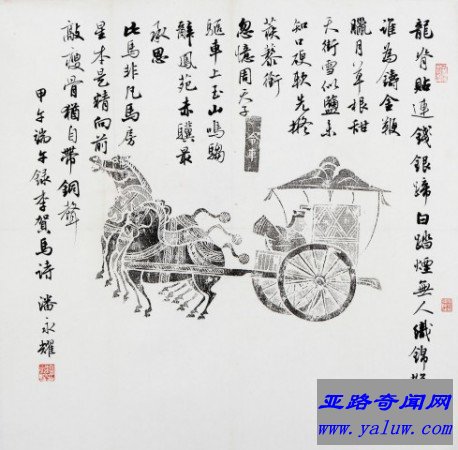 龍脊貼連錢銀蹄白踏煙無人織錦
誰為鑄金鞭
臘月草根甜
天街雪似鹽未
知口硬軟先擬
蒺藜銜
忽憶周天子
驅車上玉山鳴騶
辭鳳苑赤驥最
承恩
此馬非凡馬房
星本是精向前
敲瘦骨猶自帶銅聲
甲午端午錄李賀馬詩 潘永耀
亚路奇闻网
www.yaluw.com